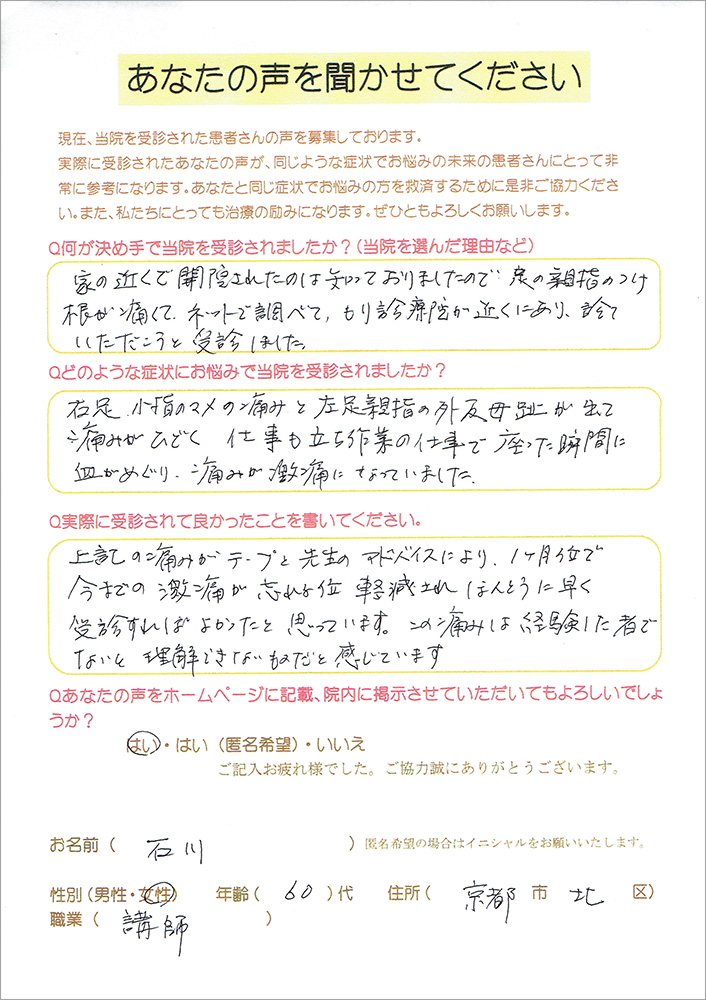 あなたの声を聞かせてください
現在、当院を受診された患者さんの声を募集しております。
実際に受診されたあなたの声が、同じような症状でお悩みの未来の患者さんにとって非
常に参考になります。あなたと同じ症状でお悩みの方を救済するために是非ご協力くださ
い。また、私たちにとっても治療の励みになります。ぜひともよろしくお願いします。
Q何が決め手で当院を受診されましたか？（当院を選んだ理由など）
家の近くで開院されたのは知っておりましたので 足の親指のつけ
根が痛くて、ネットで調べて、もり診療院が近くにあり、診て
いただこうと受診しました。
Qどのような症状にお悩みで当院を受診されましたか？
右足 小指のマメの痛みと左足親指の外反母趾が出て
痛みがひどく 仕事も立ち作業の仕事で座った瞬間に
血がめぐり、痛みが激痛になっていました。
Q実際に受診されて良かったことを書いてください。
上記の痛みがテープと先生のアドバイスにより、1ヶ月位で
今までの激痛が忘れる位 軽減され ほんとうに早く
受診すればよかったと思っています。この痛みは経験した者で
ないと理解できないものだと感じています
Qあなたの声をホームページに記載、院内に掲示させていただいてもよろしいでしょ
うか？
はい・はい（匿名希望）・いいえ
ご記入お疲れ様でした。ご協力誠にありがとうございます。
お名前（ 石川 ）匿名希望の場合はイニシャルをお願いいたします。
性別（男性・女性） 年齢（ 60 ）代 住所（ 京都 市 北 区）
職業（ 講師 ）